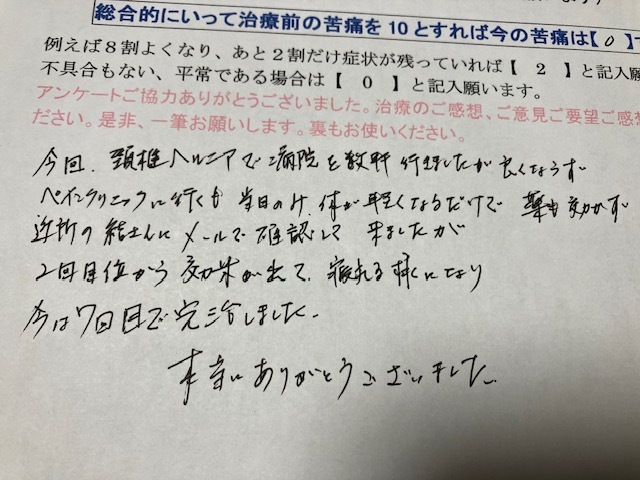 総合的にいって治療前の苦痛を10とすれば今の苦痛は【 0 】で
例えば8割よくなり、あと2割だけ症状が残っていれば【 2 】と記入願
不具合もない、平常である場合は【 0 】と記入願います。
アンケートご協力ありがとうございました。治療のご感想、ご意見ご要望ご感想
ださい。是非、一筆お願いします。裏もお使いください。
今回、頚椎ヘルニアで病院を数軒行きましたが良くならず
ペインクリニックに行くも当日のみ、体が軽くなるだけで薬も効かず
近所の結さんにメールで確認して来ましたが
2回目位から効果が出て、寝れる様になり
今は7回目で完治しました。
本当にありがとうございました。